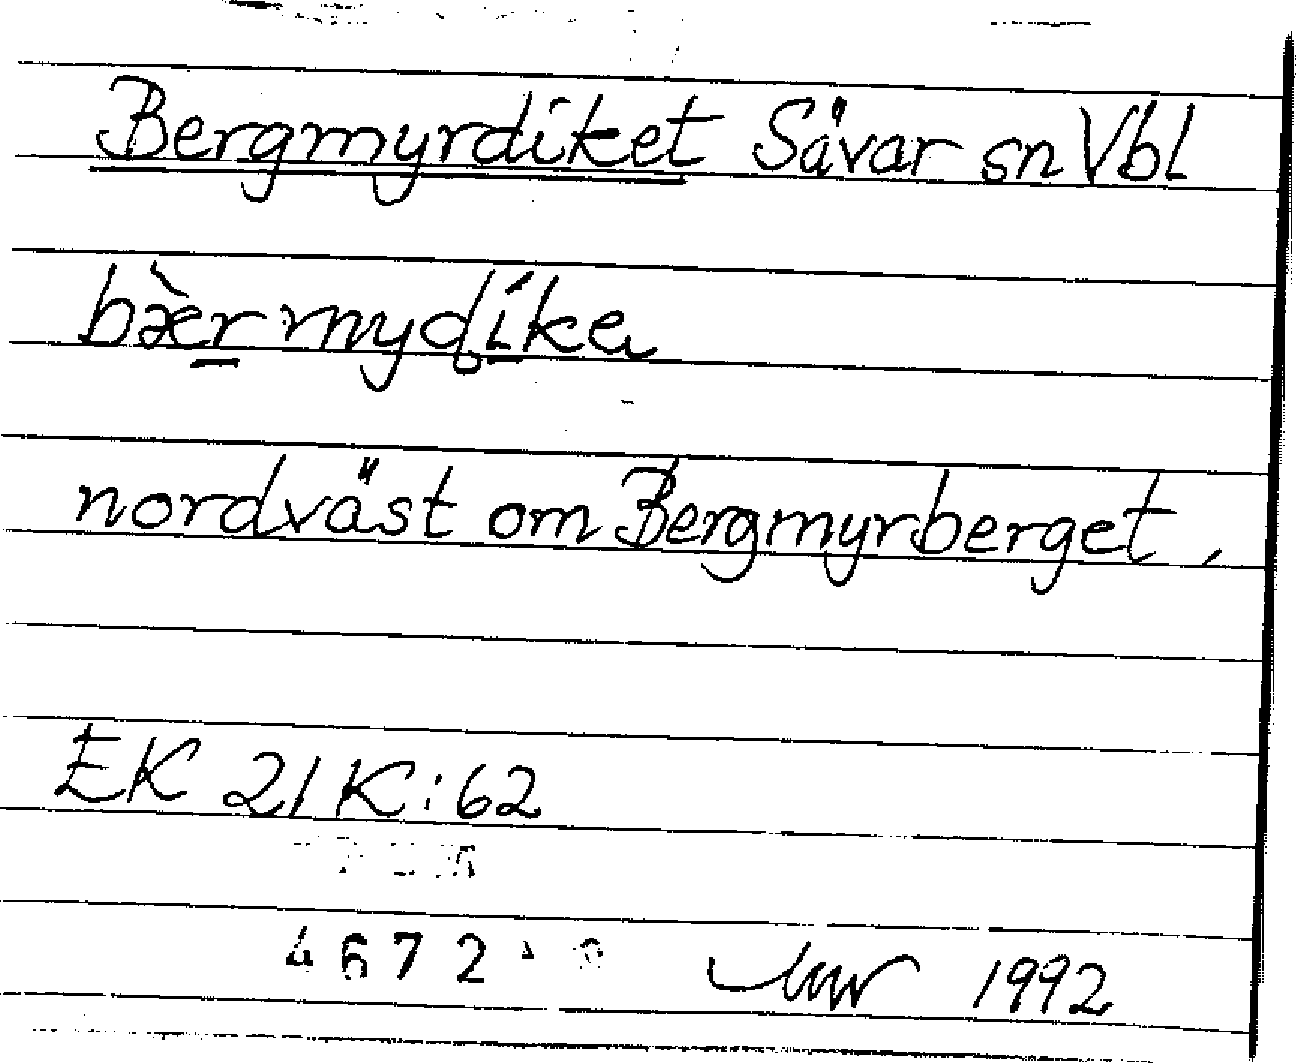 Bergmyrdiket Sävar sn Vbl
bæ̀rmydíka
nordväst om Bergmyrberget.
EK 21K:62
4672
1992